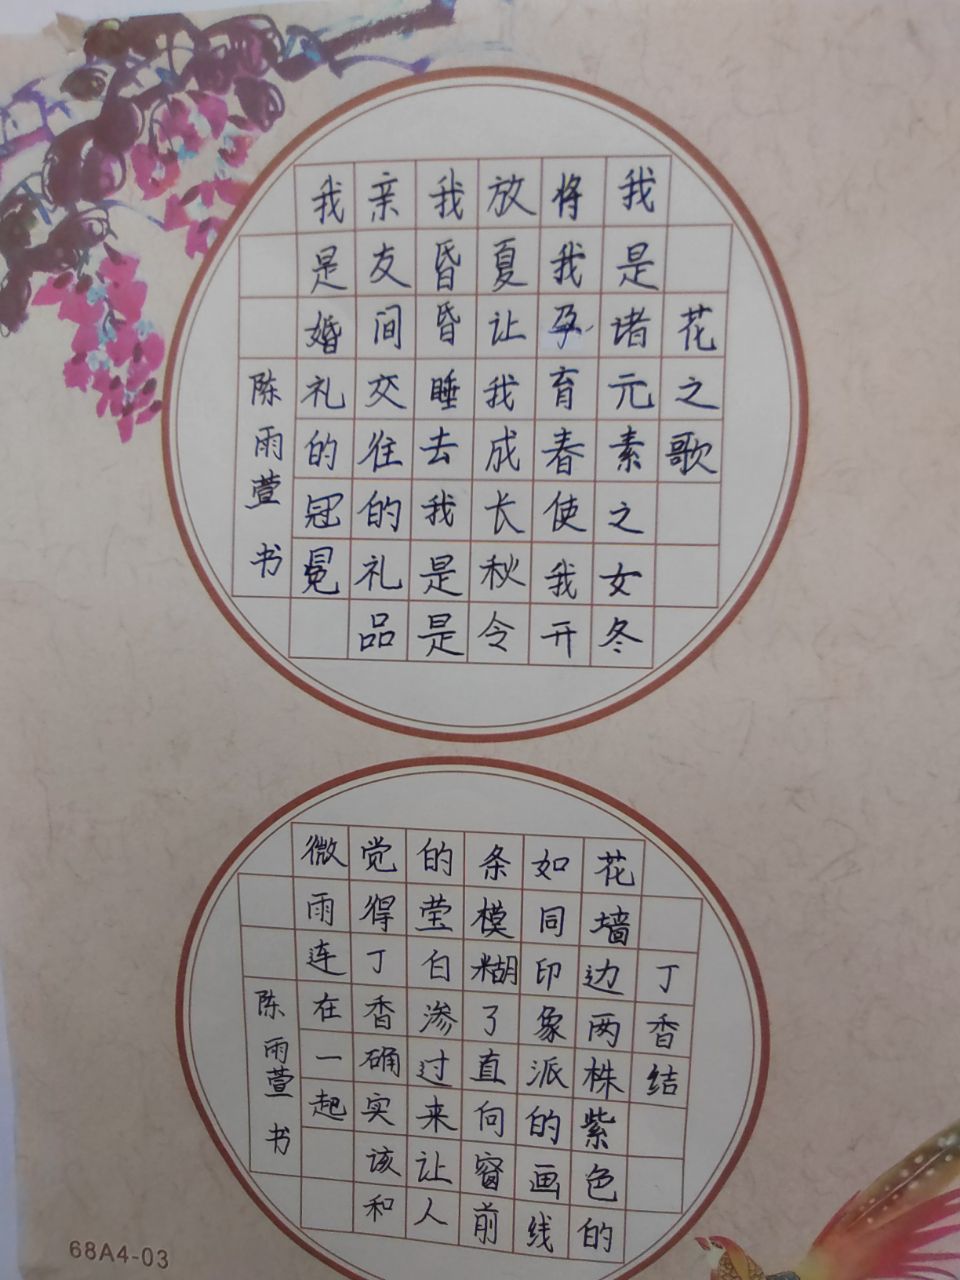 花之歌
我是诸元素之女冬
将我孕育春使我开
放夏让我成长秋令
我昏昏睡去我是是
亲友间交往的礼品
我是婚礼的冠冕
陈雨萱书
丁香结
花墙边两株紫色的
如同印象派的画线
条模糊了直向窗前
的莹白渗过来让人
觉得丁香确实该和
微雨连在一起
陈雨萱书
68A4-03